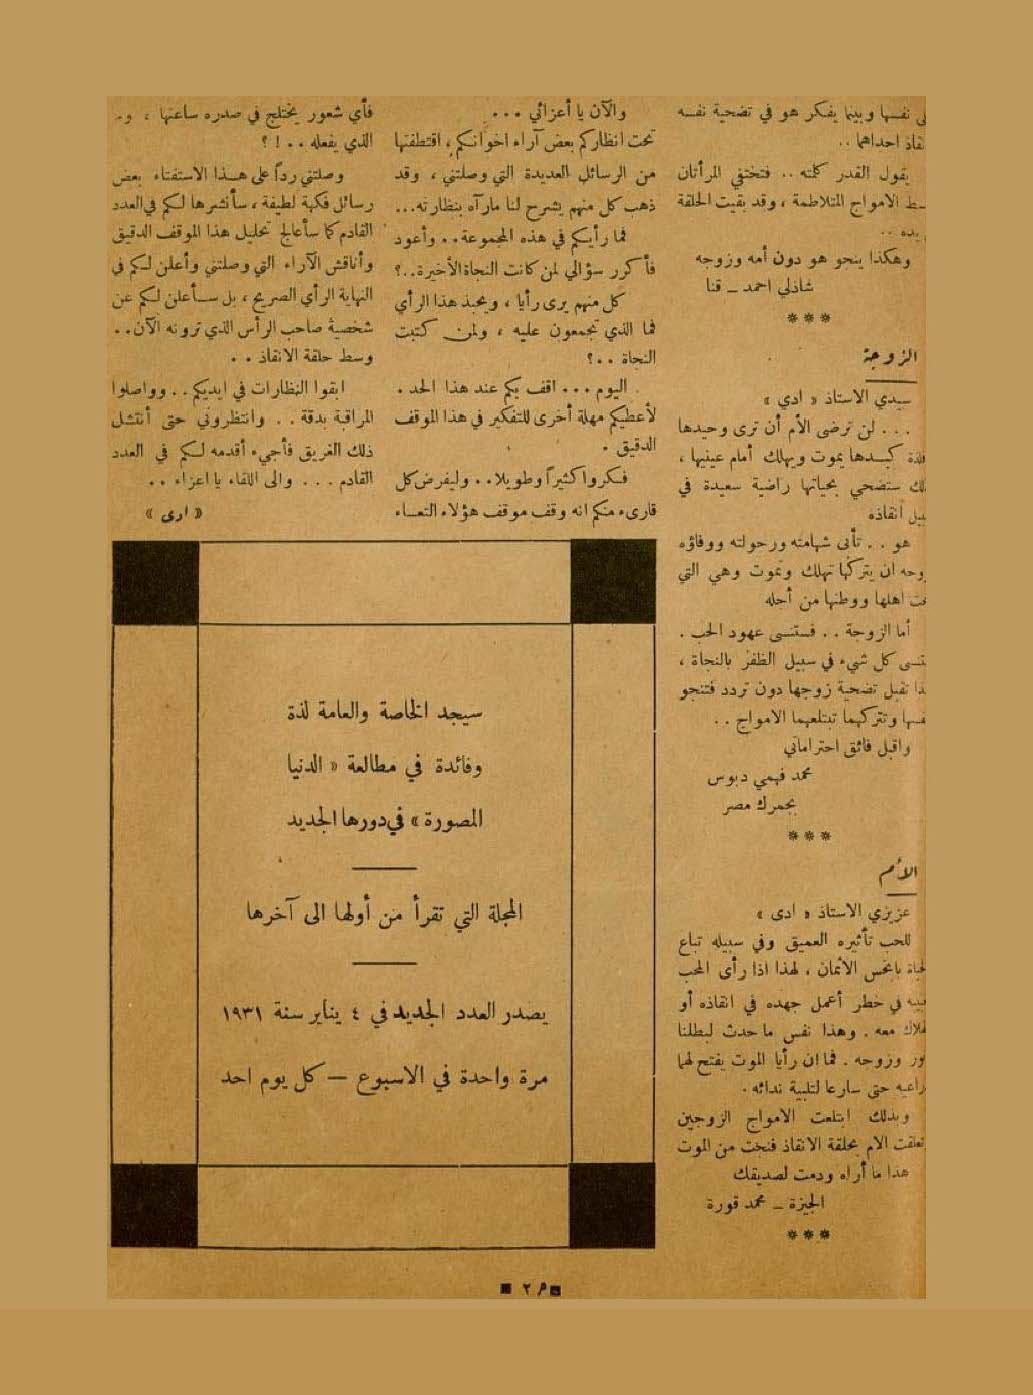 نفسها وبينما يفكر هو في تضحية نفسه
احداهما ..
يقول القدر كلمته .. فتختفي المرأتان
الامواج المتلاطمة ، وقد بقيت الحلقة
وهكذا ينحو هو دون أمه وزوجه
شاذلي احمد ــ قنا
***
الزوجة
سيدي الاستاذ « ادي »
... لن ترضى الأم أن ترى وحيدها
كبدها يموت ويهلك أمام عينيها ،
ستضحي بحياتها راضية سعيدة في
أنقاذه
هو .. تأبى شهامته ورجولته ووفاؤه
ان يتركها تهلك وتموت وهي التي
اهلها ووطنها من أجله
أما الزوجة .. فستنسى عهود الحب .
كل شيء في سبيل الظفر بالنجاة ،
تقبل تضحية زوجها دون تردد فتنجو
وتتركهما تبتلعهما الامواج ..
واقبل فائق احتراماتي
محمد فهمي دبوس
بجمرك مصر
***
الأم
عزيزي الاستاذ « ادى »
للحب تأثيره العميق وفي سبيله تباع
بابخس الأثمان ، لهذا اذا رأى المحب
في خطر أعمل جهده في انقاذه أو
معه . وهذا نفس ما حدث لبطلنا
وزوجه . فما ان رأيا الموت يفتح لهما
حتى سارعا لتلبية ندائه .
وبذلك ابتلعت الامواج الزوجين
الام بحلقة الانقاذ فنجت من الموت
هذا ما أراه ودمت لصديقك
الجيزة ــ محمد قورة
***
والآن يا أعزائي ...
تحت انظاركم بعض آراء اخوانكم ، اقتطفتها
من الرسائل العديدة التي وصلتني ، وقد
ذهب كل منهم يشرح لنا مارآه بنظارته ...
فما رأيكم في هذه المجموعة .. وأعود
فأكرر سؤالي لمن كانت النجاة الأخيرة ..؟
كل منهم يرى رأيا ، ويحبذ هذا الرأي
فما الذي تجمعون عليه ، ولمن كتبت
النجاة ..؟
اليوم ... اقف بكم عند هذا الحد .
لأعطيكم مهلة أخرى للتفكير في هذا الموقف
الدقيق .
فكروا كثيراً وطويلا .. وليفرض كل
قارىء منكم انه وقف موقف هؤلاء التعساء
فأي شعور يختلج في صدره ساعتها ،
الذي يفعله .. ! ؟
وصلتني رداً على هذا الاستفتاء بعض
رسائل فكهة لطيفة ، سأنشرها لكم في العدد
القادم كما سأعالج تحليل هذا الموقف الدقيق
وأناقش الآراء التي وصلتني وأعلن لكم في
النهاية الرأي الصريح ، بل سأعلن لكم عن
شخصية صاحب الرأس الذي ترونه الآن ..
وسط حلقة الانقاذ ..
ابقوا النظارات في ايديكم .. وواصلوا
المراقبة بدقة .. وانتظروني حتى أنتشل
ذلك الغريق فأجيء أقدمه لكم في العدد
القادم ... والى اللقاء يا اعزاء ..
« ادى »
سيجد الخاصة والعامة لذة
وفائدة في مطالعة « الدنيا
المصورة » في دورها الجديد
المجلة التي تقرأ من أولها الى آخرها
يصدر العدد الجديد في ٤ يناير سنة ١٩٣١
مرة واحدة في الاسبوع — كل يوم احد